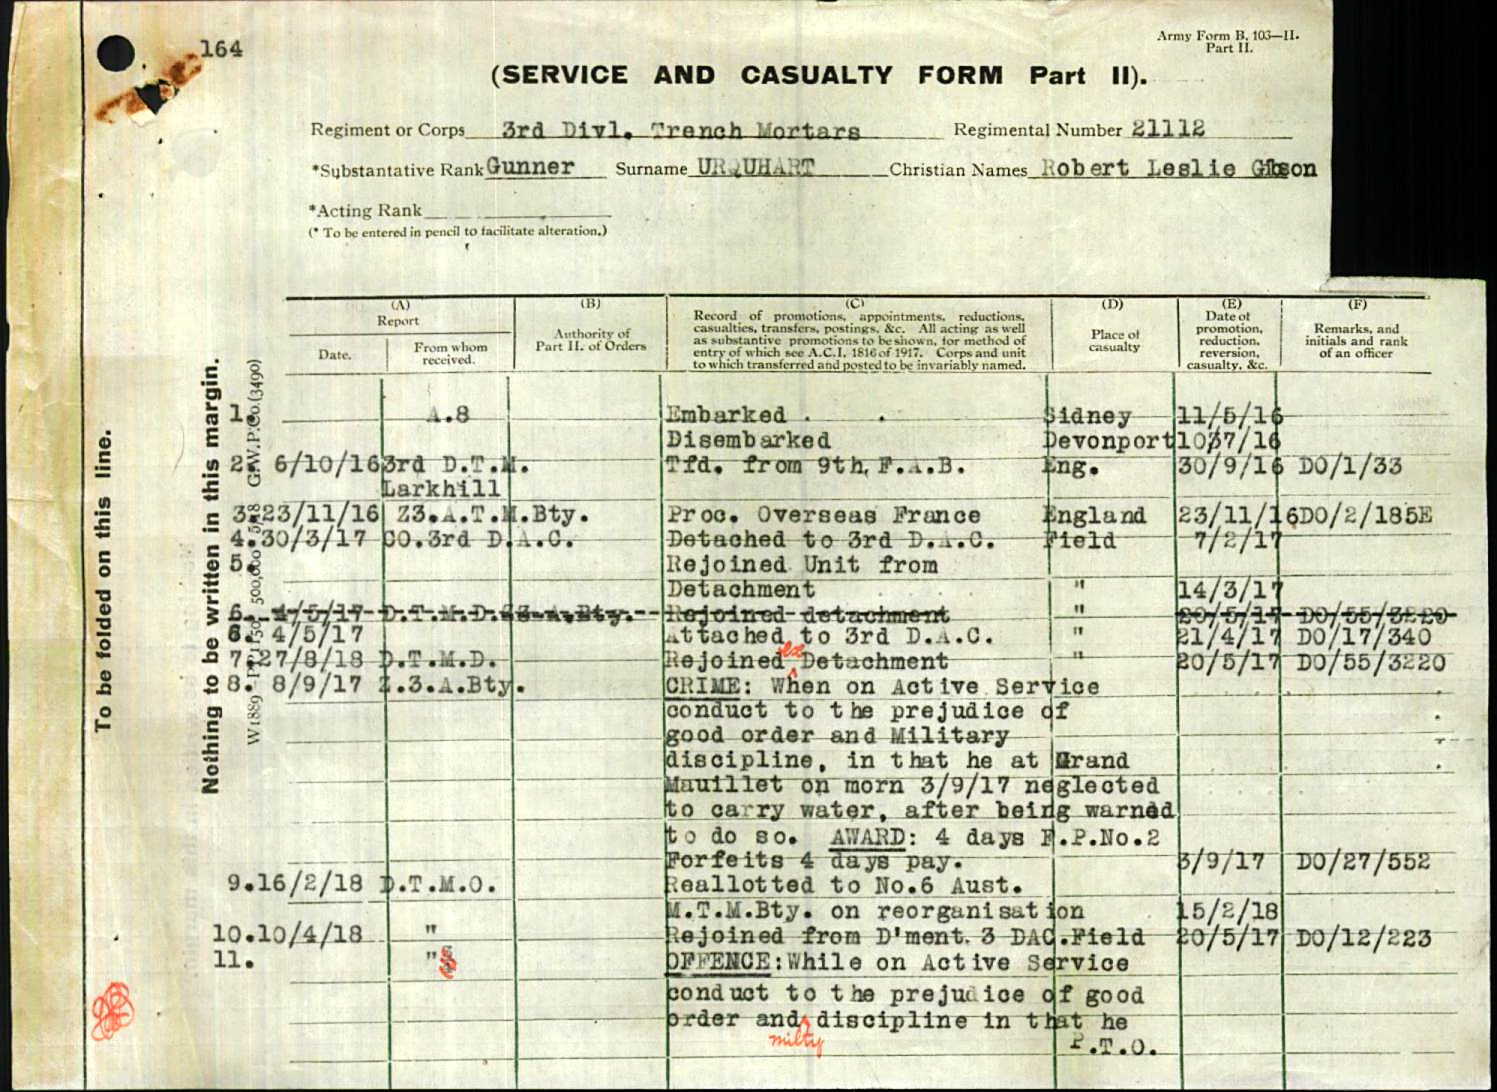 164
Army Form B. 103—II.
Part II.
(SERVICE AND CASUALTY FORM Part II).
Regiment or Corps 3rd Divl. Trench Mortars Regimental Number 21112
*Substantative Rank Gunner Surname URQUHART Christian Names Robert Leslie Gibson
*Acting Rank
(* To be entered in pencil to facilitate alteration.)
To be folded on this line.
Nothing to be written in this margin.
G.W.P.Co.(3490)
(A) (B) (C) (D) (E) (F)
Report
Date.
From whom
received.
Authority of
Part II. of Orders
Record of promotions, appointments, reductions,
casualties, transfers, postings, &c. All acting as well
as substantive promotions to be shown, for method of
entry of which see A.C.I. 1816 of 1917. Corps and unit
to which transferred and posted to be invariably named.
Place of
casualty
Date of
promotion,
reduction,
reversion,
casualty, &c.
Remarks, and
initials and rank
of an officer
1. A.8 Embarked . . Sidney 11/5/16
Disembarked Devonport 7/16
2. 6/10/16 3rd D.T.M. Tfd. from 9th, F.A.B. Eng. 30/9/16 DO/1/33
Larkhill
3. 23/11/16 Z3.A.T.M.Bty. Proc. Overseas France England 23/11/16 DO/2/185E
4. 30/3/17 CO.3rd D.A.C. Detached to 3rd D.A.C. Field 7/2/17
5. Rejoined Unit from
Detachment " 14/3/17
6. 4/5/17 D.T.M.D. Z3.A.Bty. Rejoined detachment " 20/5/17 DO/55/3220
6. 4/5/17 Attached to 3rd D.A.C. " 21/4/17 DO/17/340
7. 27/8/18 D.T.M.D. Rejoined ex Detachment " 20/5/17 DO/55/3220
8. 8/9/17 Z.3.A.Bty. CRIME: When on Active Service
conduct to the prejudice of
good order and Military
discipline, in that he at Grand
Mauillet on morn 3/9/17 neglected
to carry water, after being warned
to do so. AWARD: 4 days F.P.No.2
Forfeits 4 days pay. 3/9/17 DO/27/552
9. 16/2/18 D.T.M.O. Reallotted to No.6 Aust.
M.T.M.Bty. on reorganisation 15/2/18
10. 10/4/18 " Rejoined from D'ment. 3 DAC. Field 20/5/17 DO/12/223
11. " OFFENCE: While on Active Service
conduct to the prejudice of good
order and milty discipline in that he
P.T.O.